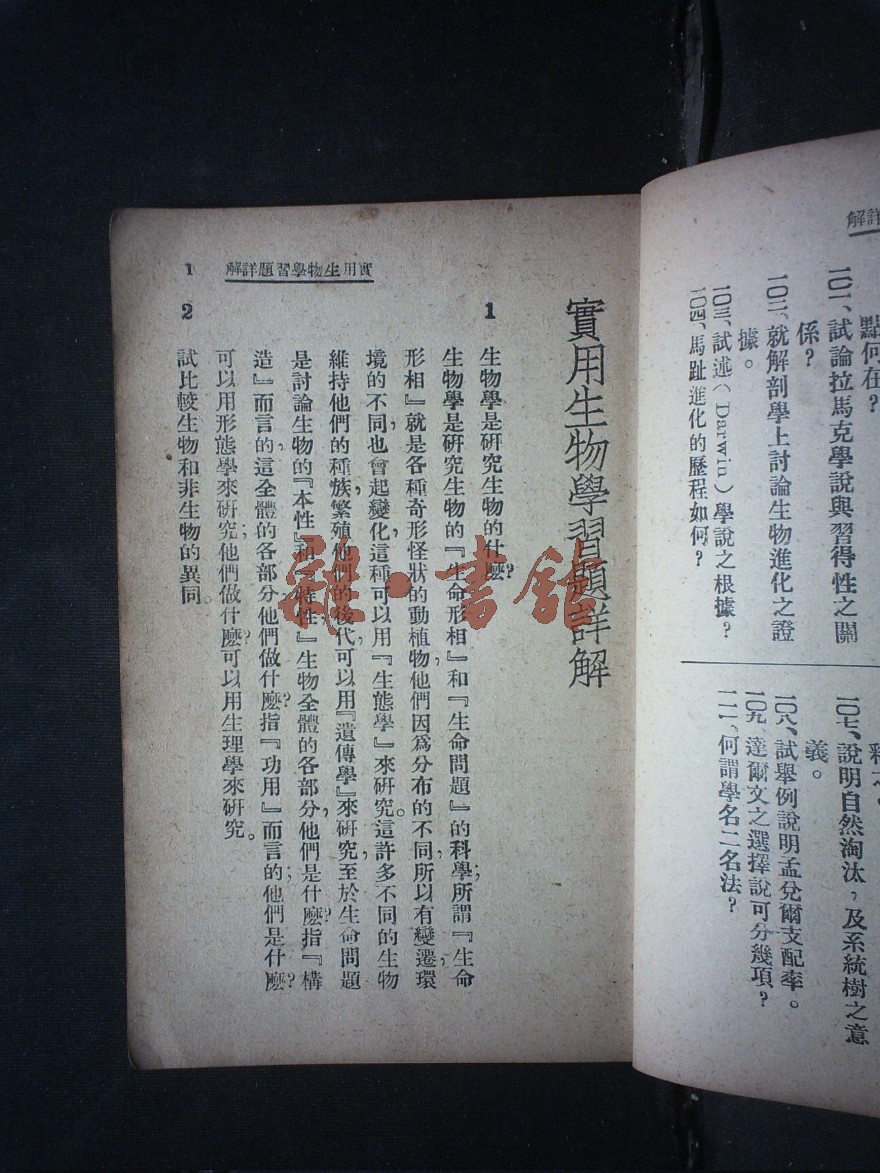 詳解
點何在?
一〇一、試論拉馬克學說與習得性之關
係?
一〇二、就解剖學上討論生物進化之證
據。
一〇三、試述(Darwin)學說之根據?
一〇四、馬趾進化的歷程如何?
一〇七、說明自然淘汰,及系統樹之意
義。
一〇八、試舉例說明孟兌爾支配率。
一〇九、達爾文之選擇說可分幾項?
一一一、何謂學名二名法?
實用生物學習題詳解 1
實用生物學習題詳解
1 生物學是研究生物的什麼?
生物學是研究生物的『生命形相』和『生命問題』的科學;所謂『生命
形相』,就是各種奇形怪狀的動植物,他們因爲分布的不同,所以有變遷,環
境的不同,也會起變化,這種可以用『生態學』來研究。這許多不同的生物
維持他們的種族,繁殖他們的後代,可以用『遺傳學』來研究,至於生命問題
是討論生物的『本性』和『特性』,生物全體的各部分,他們是什麼?指『構
造』而言的,這全體的各部分他們做什麼?指『功用』而言的;他們是什麼?
可以用形態學來研究;他們做什麼?可以用生理學來研究。
2 試比較生物和非生物的異同。
雜·書館